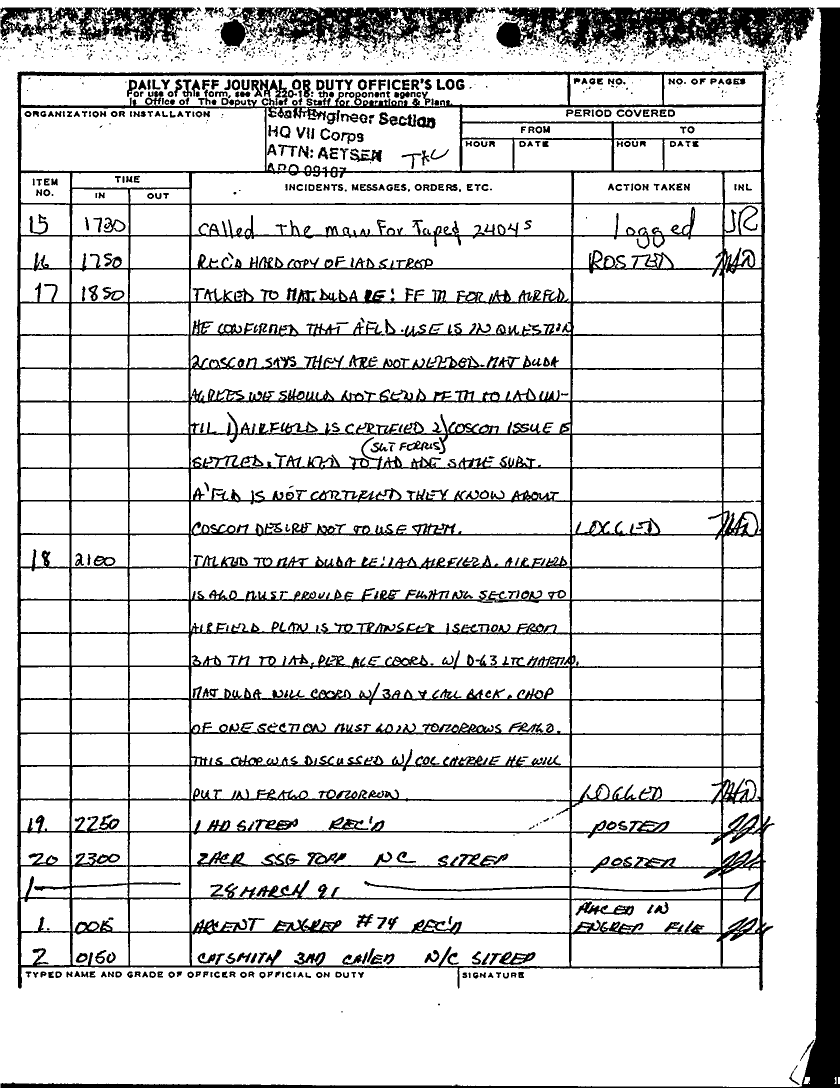 DAILY STAFF JOURNAL OR DUTY OFFICER'S LOG
For use of this form, see AR 220-15: the proponent agency
is Office of The Deputy Chief of Staff for Operations & Plans.
PAGE NO.
NO. OF PAGES
ORGANIZATION OR INSTALLATION
Engineer Section
HQ VII Corps
ATTN: AETSEN TAC
APO 09107
PERIOD COVERED
FROM TO
HOUR DATE HOUR DATE
ITEM NO. TIME IN OUT INCIDENTS, MESSAGES, ORDERS, ETC. ACTION TAKEN INL
15 1730 CAlled The main For Taped 2404s logged JR
16 1750 REC'D HARD COPY OF 1AD SITREP POSTED
17 1850 TALKED TO MAJ. DUDA RE: FF TM FOR 1AD AIRFLD.
HE CONFIRMED THAT A'FLD USE IS IN QUESTION
2COSCOM SAYS THEY ARE NOT NEEDED. MAJ DUDA
AGREES WE SHOULD NOT SEND FF TM TO 1AD UN-
TIL 1) AIRFIELD IS CERTIFIED 2) COSCOM ISSUE IS
(SGT FERRIS)
SETTLED. TALKED TO 1AD ADE SAME SUBJ.
A'FLD IS NOT CERTIFIED THEY KNOW ABOUT
COSCOM DESIRE NOT TO USE THEM. LOGGED
18 2100 TALKED TO MAJ DUDA RE: 1AD AIRFIELD. AIRFIELD
IS A GO MUST PROVIDE FIRE FIGHTING SECTION TO
AIRFIELD. PLAN IS TO TRANSFER 1 SECTION FROM
3AD TM TO 1AD, PER ALE COORD. W/ D-63 LTC MARTIN.
MAJ DUDA WILL COORD W/ 3AD & CALL BACK. CHOP
OF ONE SECTION MUST GO IN TOMORROWS FRAGO.
THIS CHOP WAS DISCUSSED W/ COL CHERRIE HE WILL
PUT IN FRAGO TOMORROW. LOGGED
19. 2250 1 AD SITREP REC'D POSTED
20 2300 2ACR SSG TORP NC SITREP POSTED
28 MARCH 91
1. 0015 ARCENT ENGREP #74 REC'D PLACED IN
ENGREP FILE
2 0150 CPT SMITH 3AD CAllED N/C SITREP
TYPED NAME AND GRADE OF OFFICER OR OFFICIAL ON DUTY
SIGNATURE